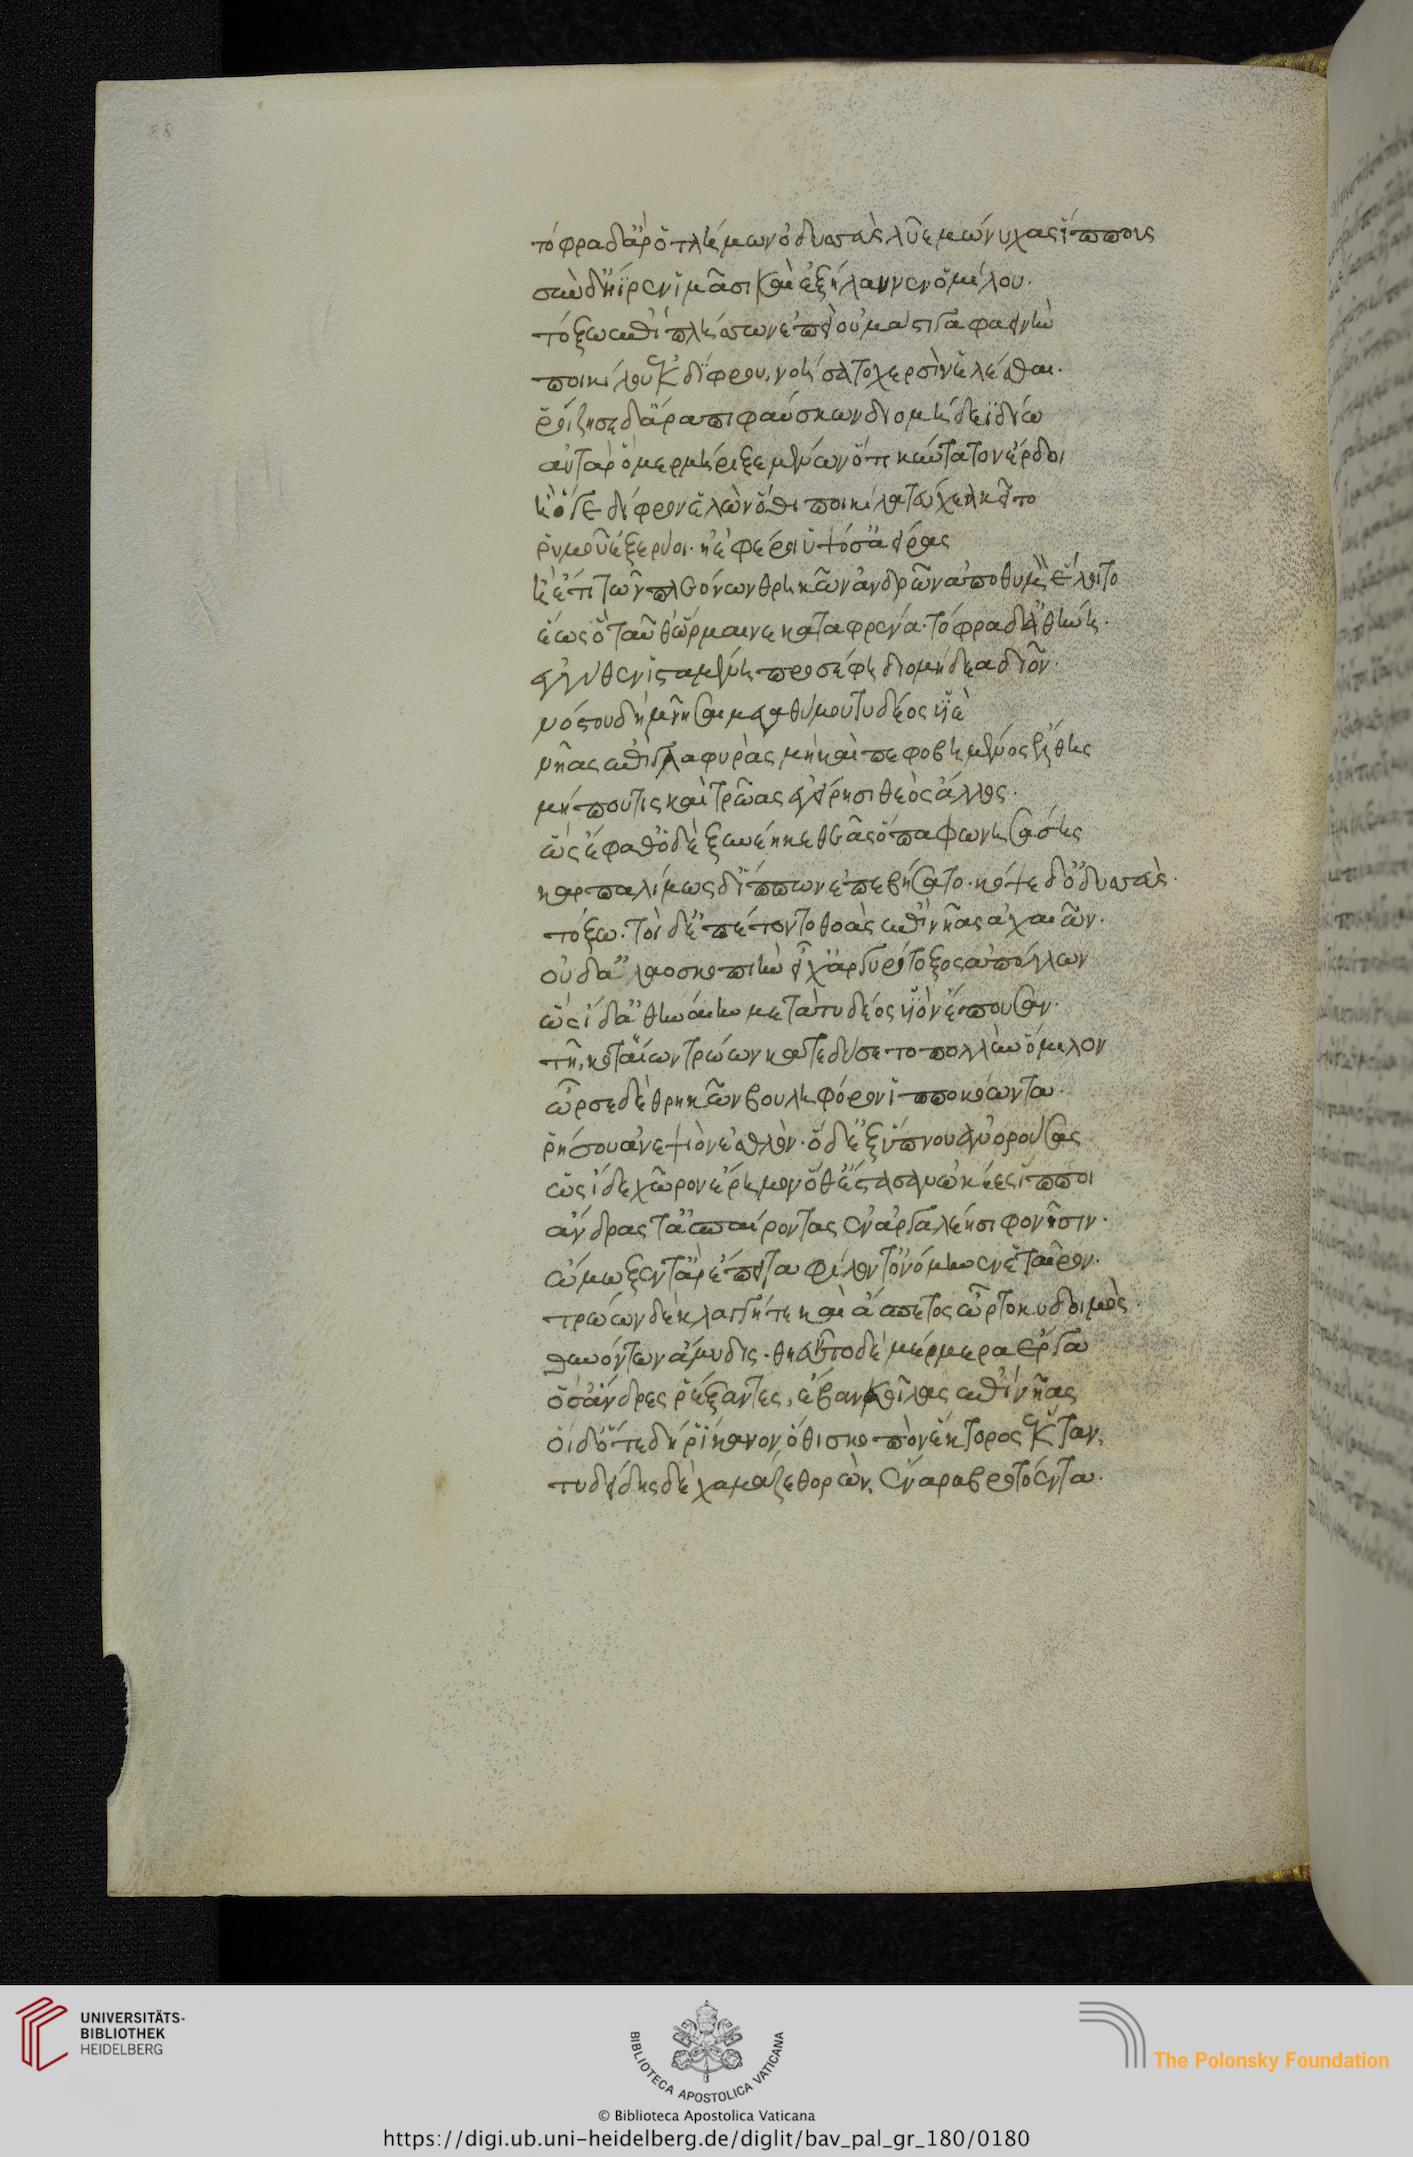 88
τόφρα δ' ἄρ' ὁ τλήμων ὀδυσσεὺς λῦε μώνυχας ἵππους
σὺν δ' ἤϊρεν ἱμᾶσι καὶ ἐξήλαυνεν ὁμίλου·
τόξω ἐπιπλήσσων ἐπεὶ οὐ μάστιγα φαεινὴν
ποικίλου ἐκ δίφρου, νοήσατο χερσὶν ἑλέσθαι·
ῥοίζησε δ' ἄρα πιφαύσκων διομήδεϊ δίω
αὐτὰρ ὁ μερμήριξε μένων ὅτι κύντατον ἔρδοι
ἢ ὅγε δίφρον ἑλὼν ὅθι ποικίλα τεύχεα κεῖτο
ῥυμοῦ ἐξερύοι· ἢ ἐκφέροι ὑψόσ' ἀείρας
ἢ ἔτι τῶν πλεόνων θρηκῶν ἀνδρῶν ἀπὸ θυμὸν ἕλοιτο
ἕως ὁ ταῦθ' ὥρμαινε κατὰ φρένα· τόφρα δ' ἀθήνη·
ἐγγύθεν ἱσταμένη προσέφη διομήδεα δῖον·
νόστου δὴ μνῆσαι μεγαθύμου τυδέος υἱὲ
νῆας ἐπὶ γλαφυρὰς μὴ καὶ πεφοβημένος ἔλθης
μή που τις καὶ τρῶας ἐγείρησι θεὸς ἄλλος·
ὣς ἔφαθ' ὁ δὲ ξυνέηκε θεᾶς ὄπα φωνησάσης
καρπαλίμως δ' ἵππων ἐπεβήσατο· κόψε δ' ὀδυσσεὺς·
τόξω· τοὶ δ' ἐπέτοντο θοὰς ἐπὶ νῆας ἀχαιῶν·
οὐδ' ἀλαοσκοπιὴν εἶχ' ἀργυρότοξος ἀπόλλων
ὡς ἴδ' ἀθηναίην μετὰ τυδέος υἱὸν ἕπουσαν·
τῆ, κοτέων τρώων κατεδύσετο πολλὺν ὅμιλον
ὦρσε δὲ θρηκῶν βουληφόρον ἱπποκόωντα·
ῥήσου ἀνεψιὸν ἐσθλὸν· ὁ δ' ἐξ ὕπνου ἀνορούσας
ὡς ἴδε χῶρον ἐρῆμον ὅθ' ἕστασαν ὠκέες ἵπποι
ἄνδρας τ' ἀσπαίροντας ἐν ἀργαλέησι φονῆσιν·
ὤμωξεν τ' ἄρ' ἔπειτα φίλον τ' ὀνόμηνεν ἑταῖρον·
τρώων δὲ κλαγγή τε καὶ ἄσπετος ὦρτο κυδοιμὸς·
θυνόντων ἄμυδις· θηεῦντο δὲ μέρμερα ἔργα
ὅσ' ἄνδρες ῥέξαντες, ἔβαν κοίλας ἐπὶ νῆας
οἱ δ' ὅτε δή ῥ' ἵκανον ὅθι σκοπὸν ἕκτορος ἔκταν,
τυδείδης δὲ χαμᾶζε θορὼν, ἔναρα βροτόεντα·
UNIVERSITÄTS-
BIBLIOTHEK
HEIDELBERG
BIBLIOTECA APOSTOLICA VATICANA
The Polonsky Foundation
© Biblioteca Apostolica Vaticana
https://digi.ub.uni-heidelberg.de/diglit/bav_pal_gr_180/0180